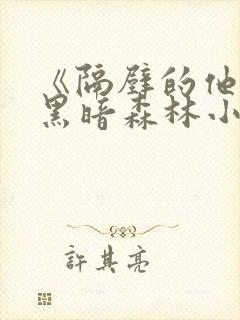 《隔壁的他
黑暗森林小
許其亮